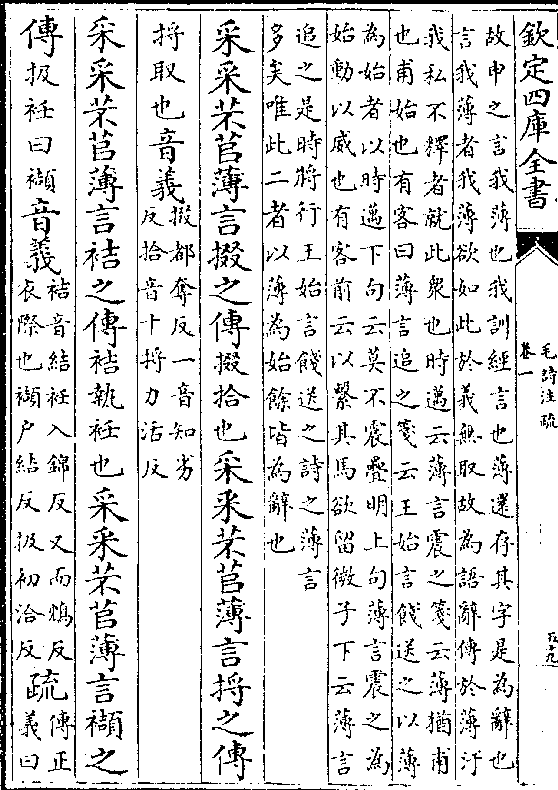 欽定四庫全書
毛詩注疏
卷一
故申之言我薄也我訓經言也薄還存其字是為辭也
言我薄者我薄欲如此於義無取故為語辭傳於薄汙
我私不釋者就此衆也時邁云薄言震之箋云薄猶甫
也甫始也有客曰薄言追之箋云王始言餞送之以薄
為始者以時邁下句云莫不震疊明上句薄言震之為
始動以威也有客前云以縶其馬欲留微子下云薄言
追之是時將行王始言餞送之詩之薄言
多矣唯此二者以薄為始餘皆為辭也
采采芣苢薄言掇之傳掇拾也采采芣苢薄言捋之傳
捋取也音義掇都奪反一音知劣
反拾音十捋力活反
采采芣苢薄言袺之傳袺執衽也采采芣苢薄言襭之
傳扱衽曰襭音義袺音結衽入錦反又而鴆反
衣際也襭户結反扱初洽反疏傳正
義曰